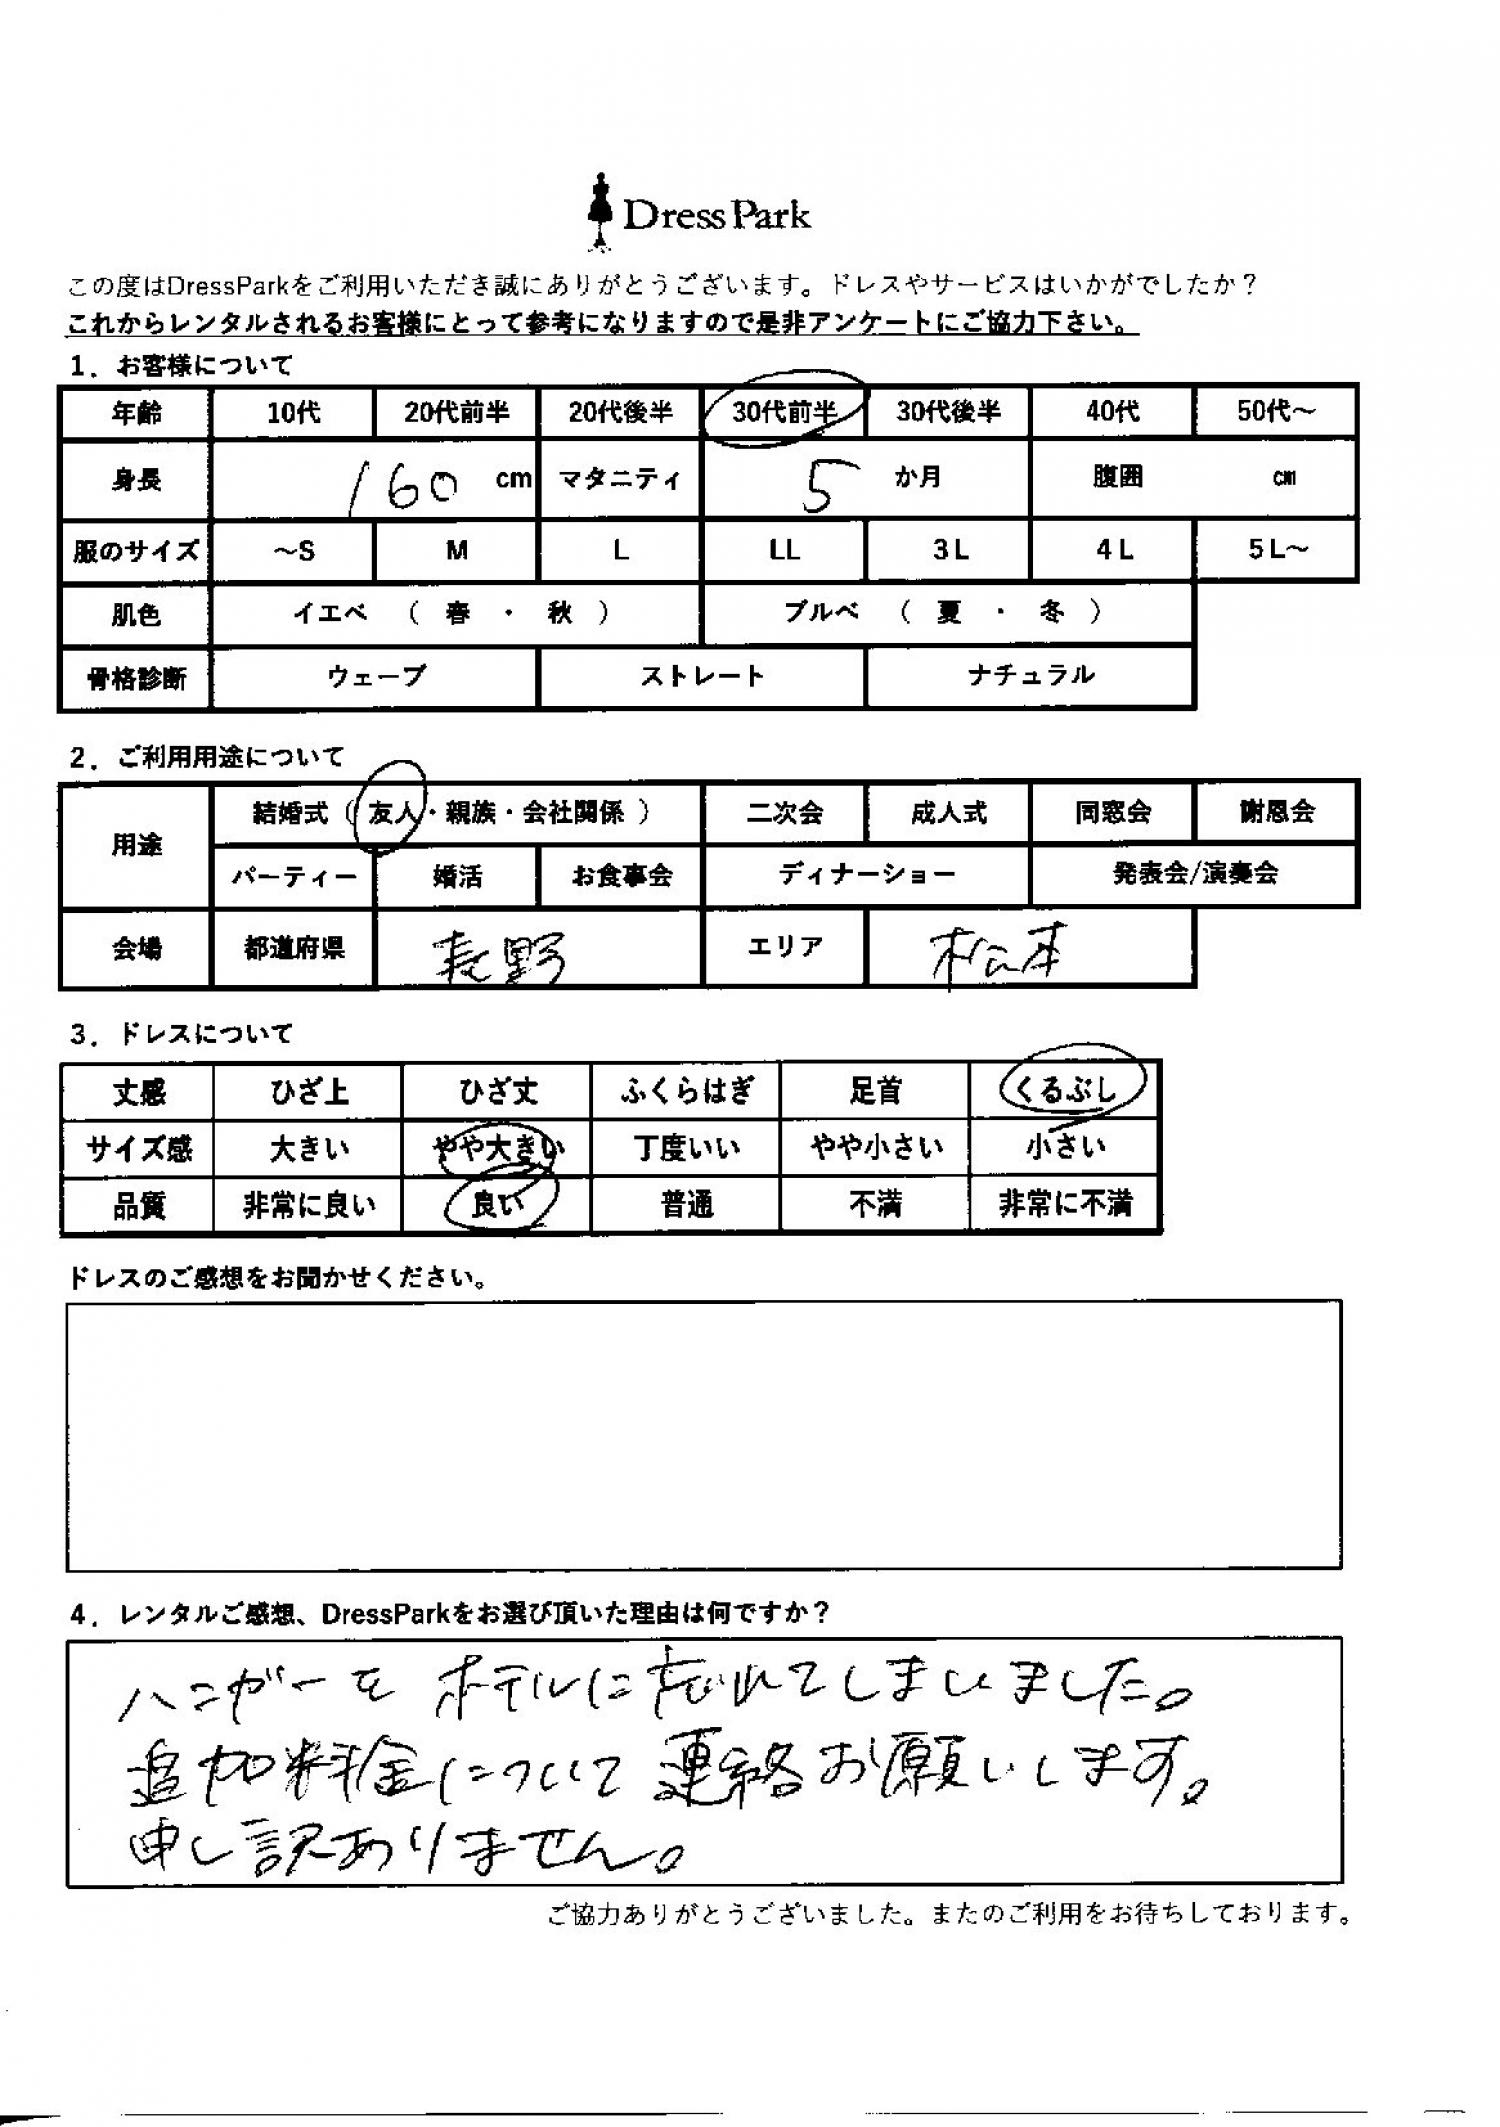 DressPark
この度はDressParkをご利用いただき誠にありがとうございます。ドレスやサービスはいかがでしたか？
これからレンタルされるお客様にとって参考になりますので是非アンケートにご協力下さい。
1．お客様について
年齢 10代 20代前半 20代後半 30代前半 30代後半 40代 50代～
身長 160 cm マタニティ 5 か月 腹囲 cm
服のサイズ ～S M L LL 3L 4L 5L～
肌色 イエベ （ 春 ・ 秋 ） ブルベ （ 夏 ・ 冬 ）
骨格診断 ウェーブ ストレート ナチュラル
2．ご利用用途について
用途 結婚式（ 友人・親族・会社関係 ） 二次会 成人式 同窓会 謝恩会
パーティー 婚活 お食事会 ディナーショー 発表会/演奏会
会場 都道府県 長野 エリア 松本
3．ドレスについて
丈感 ひざ上 ひざ丈 ふくらはぎ 足首 くるぶし
サイズ感 大きい やや大きい 丁度いい やや小さい 小さい
品質 非常に良い 良い 普通 不満 非常に不満
ドレスのご感想をお聞かせください。
4．レンタルご感想、DressParkをお選び頂いた理由は何ですか？
ハンガーを ホテルに忘れてしまいました。
追加料金について 連絡お願いします。
申し訳ありません。
ご協力ありがとうございました。またのご利用をお待ちしております。